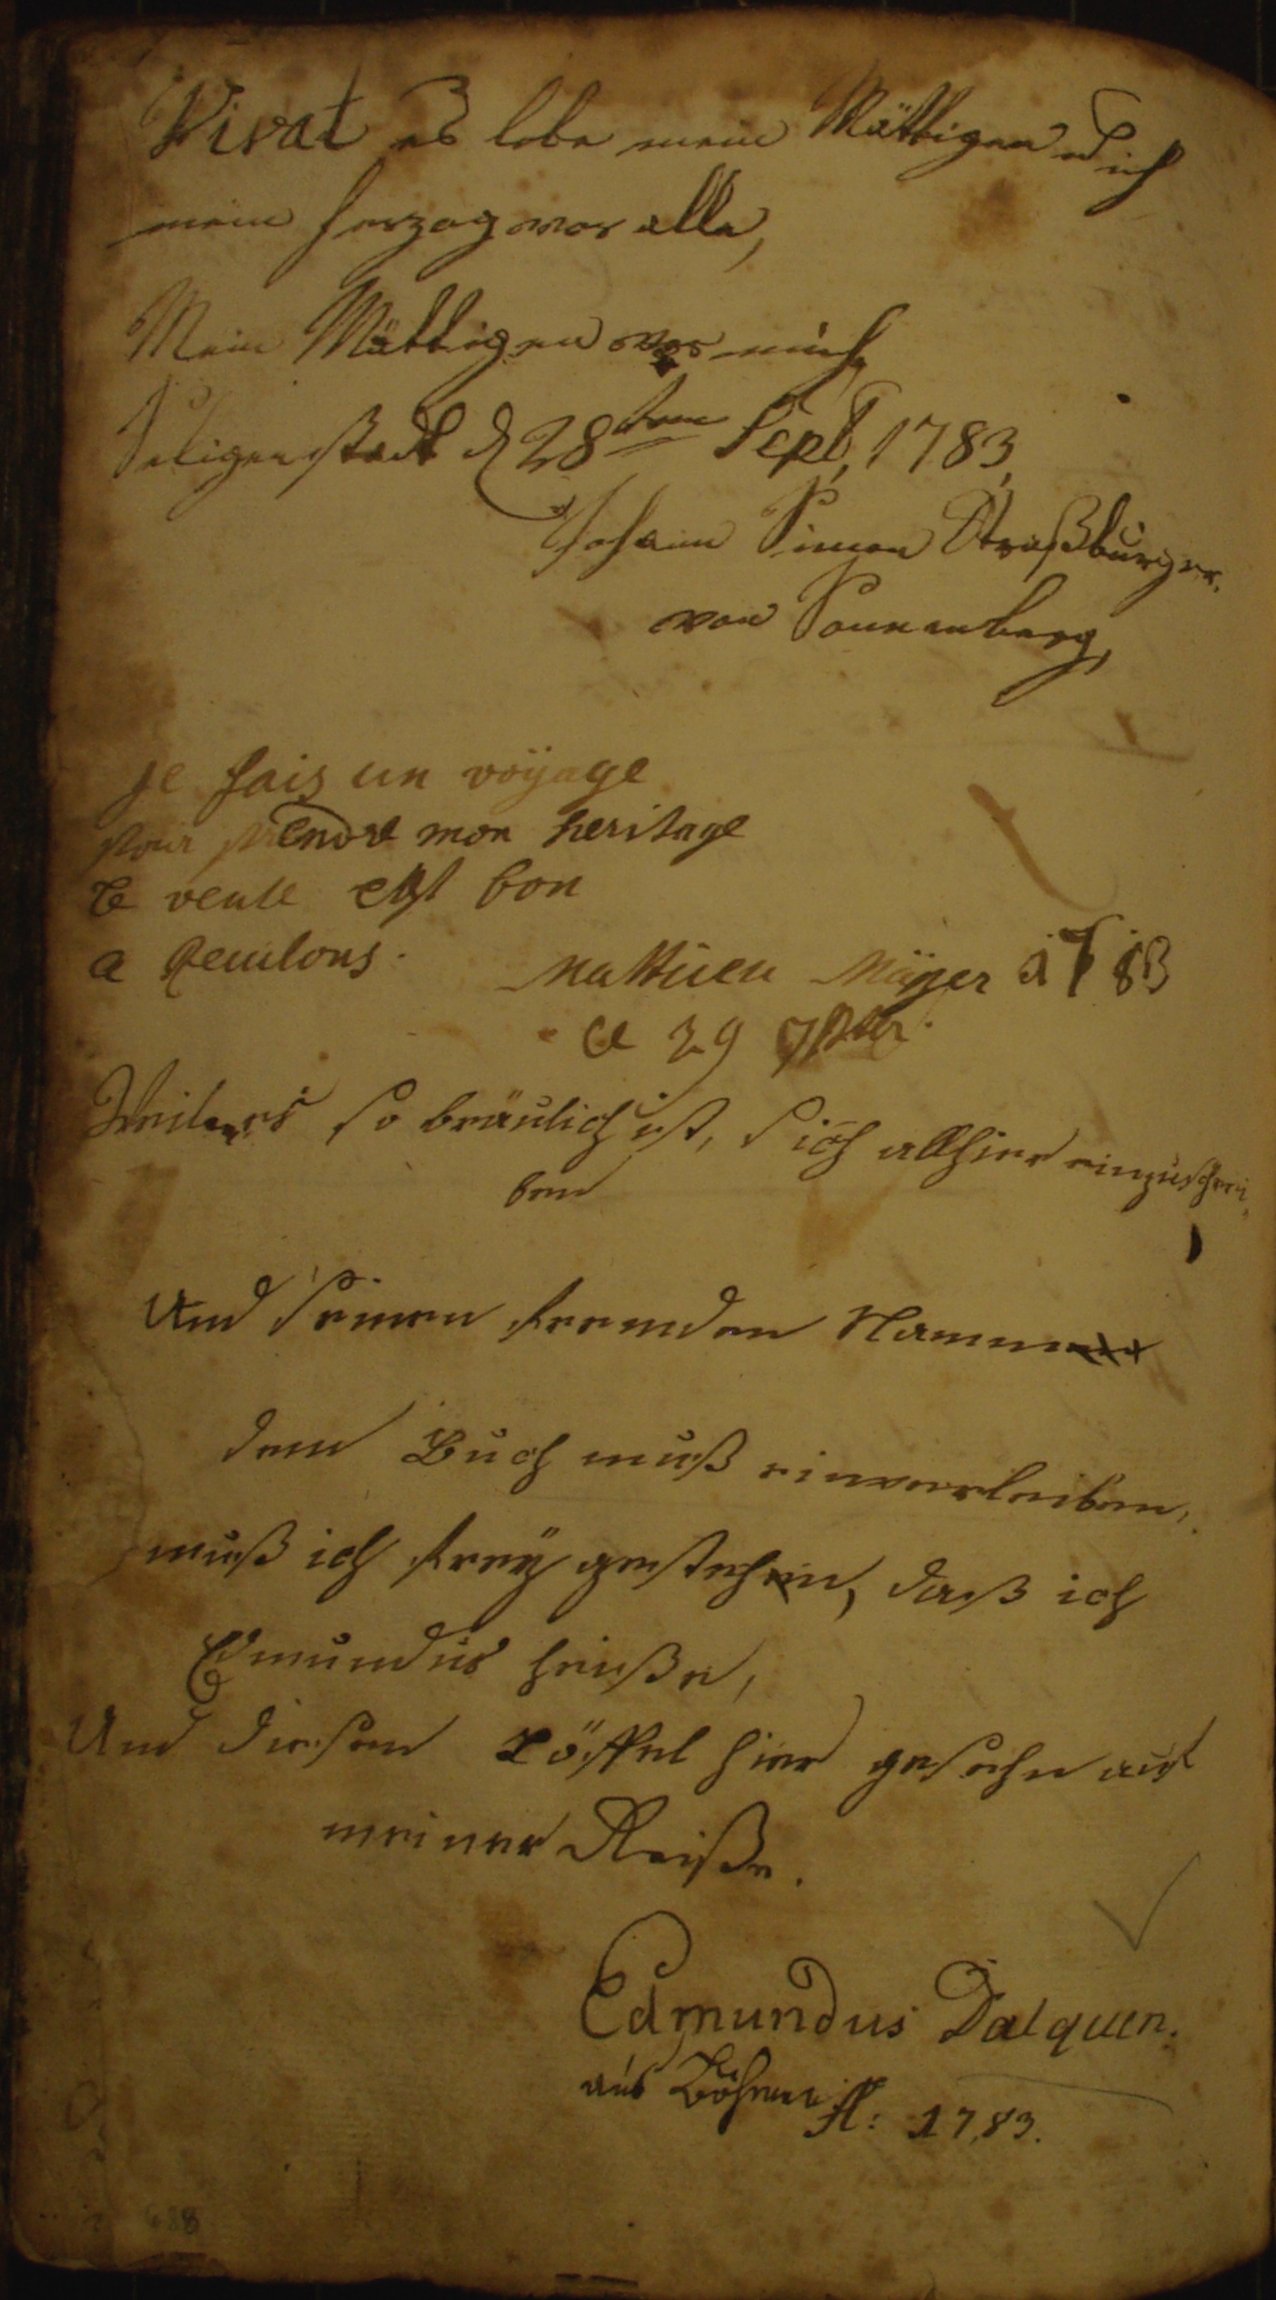 Vivat es lebe mein Mättigen und ich
mein herzog vor alle,
Mein Mättigen vor mich
Seligenstadt d 28ten Sept, 1783,
Johann Simon Straßburger.
von Sonnenberg,
je fais un voÿage
pour prendre mon heritage
le vente est bon
a
Mattieu Mäyer a 1783
le 29 7bber.
Weilen es so bräulich ist, Sich allhier einzuschrei,
ben
Und Seinen fremden Nammen
dem Buch muß einverleiben,
muß ich freÿ gestehen, daß ich
Edmundus heiße,
Und diesen Löffel hier gesehn auf
meiner Reiße.
Edmundus Dalquen.
aus Böhmen A: 1783.
688